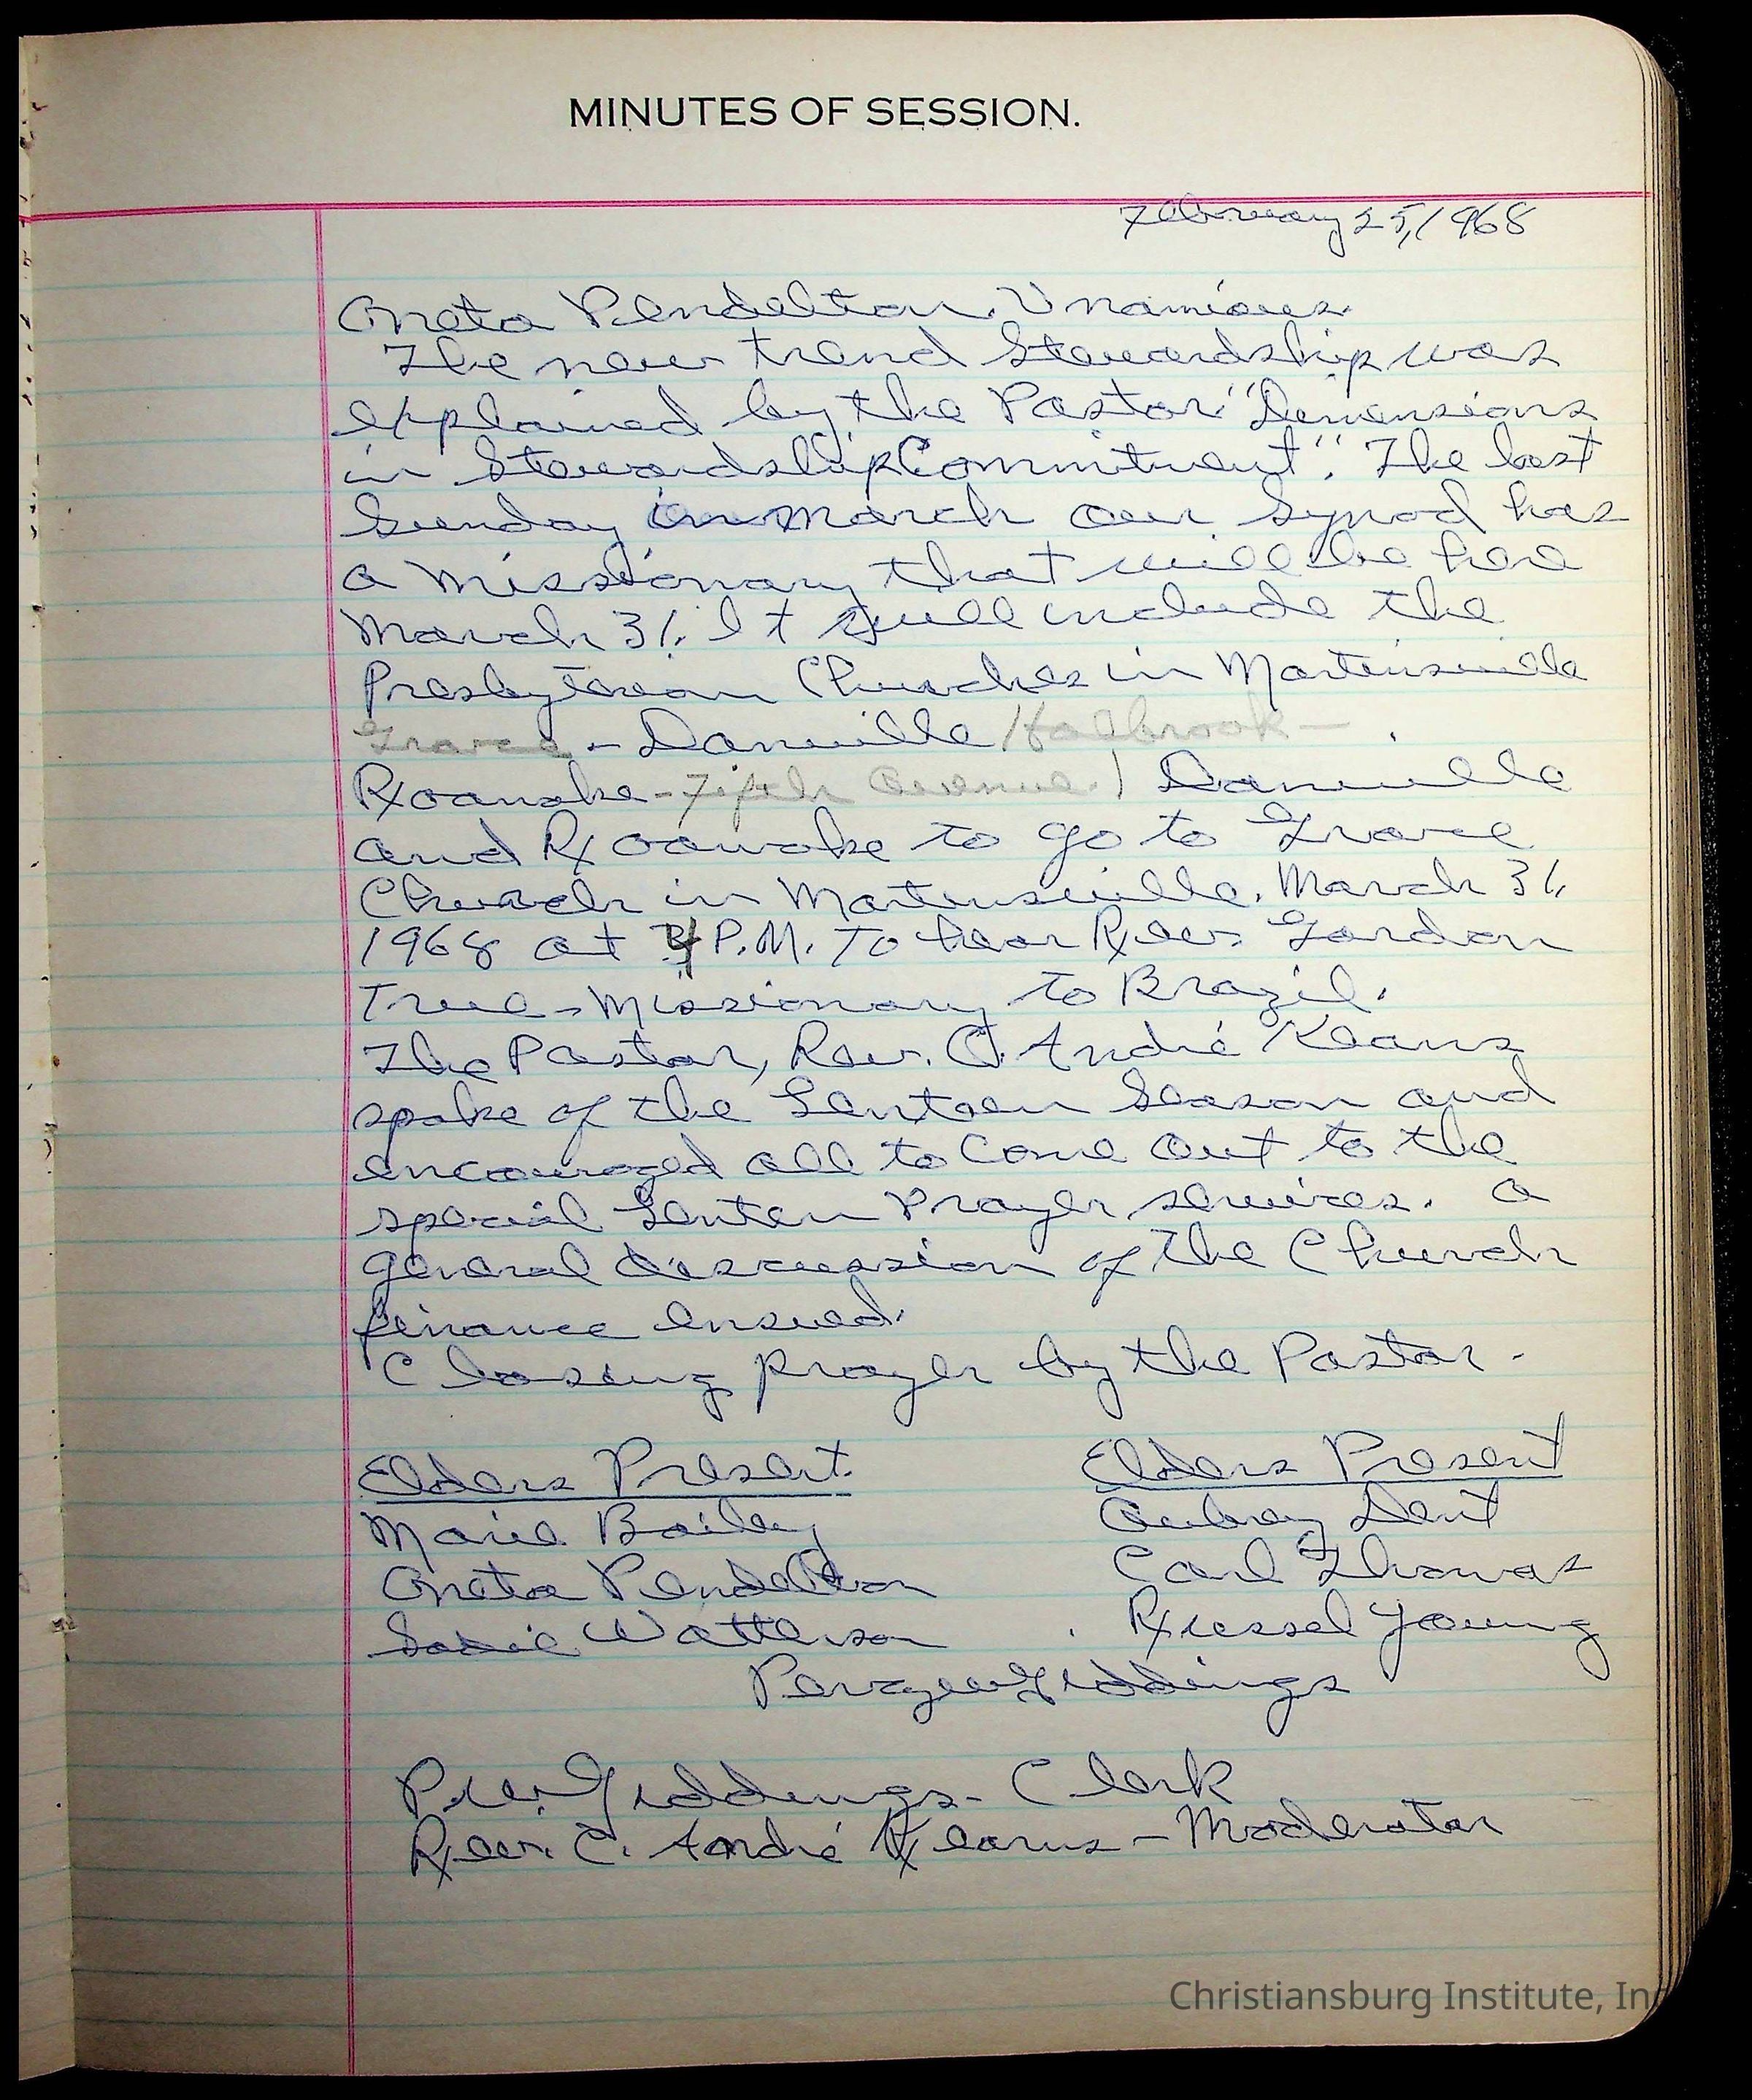 MINUTES OF SESSION.
February 25, 1968
Oneta Pendelton. Unamious.
The new trend Stewardship was
explained by the Pastor. "Dimensions
in Stewardship Commitment". The last
Sunday in March our Synod has
a Missionary that will be here
March 31. It will include the
Presbyterean Churches in Martinsville
Grace - Danville Holbrook -
Roanoke - Fifth Avenue.) Danville
and Roanoke to go to Grace
Church in Martinsville. March 31,
1968 at 4 P.M. To hear Rev. Gordon
True - Missionary to Brazil.
The Pastor, Rev. C. André Kearns
spoke of the Lentoen Season and
encouraged all to Come out to the
special Lenten Prayer services. A
general discussion of the Church
finance ensued.
Closing prayer by the Pastor.
Elders Present. Elders Present
Marie Bailey Aubrey Dent
Oneta Pendelton Carl Thomas
Sadie Watterson Russel Young
Giddings
Giddings - Clerk
Rev. C. André Kearns - Moderator
Christiansburg Institute, Inc